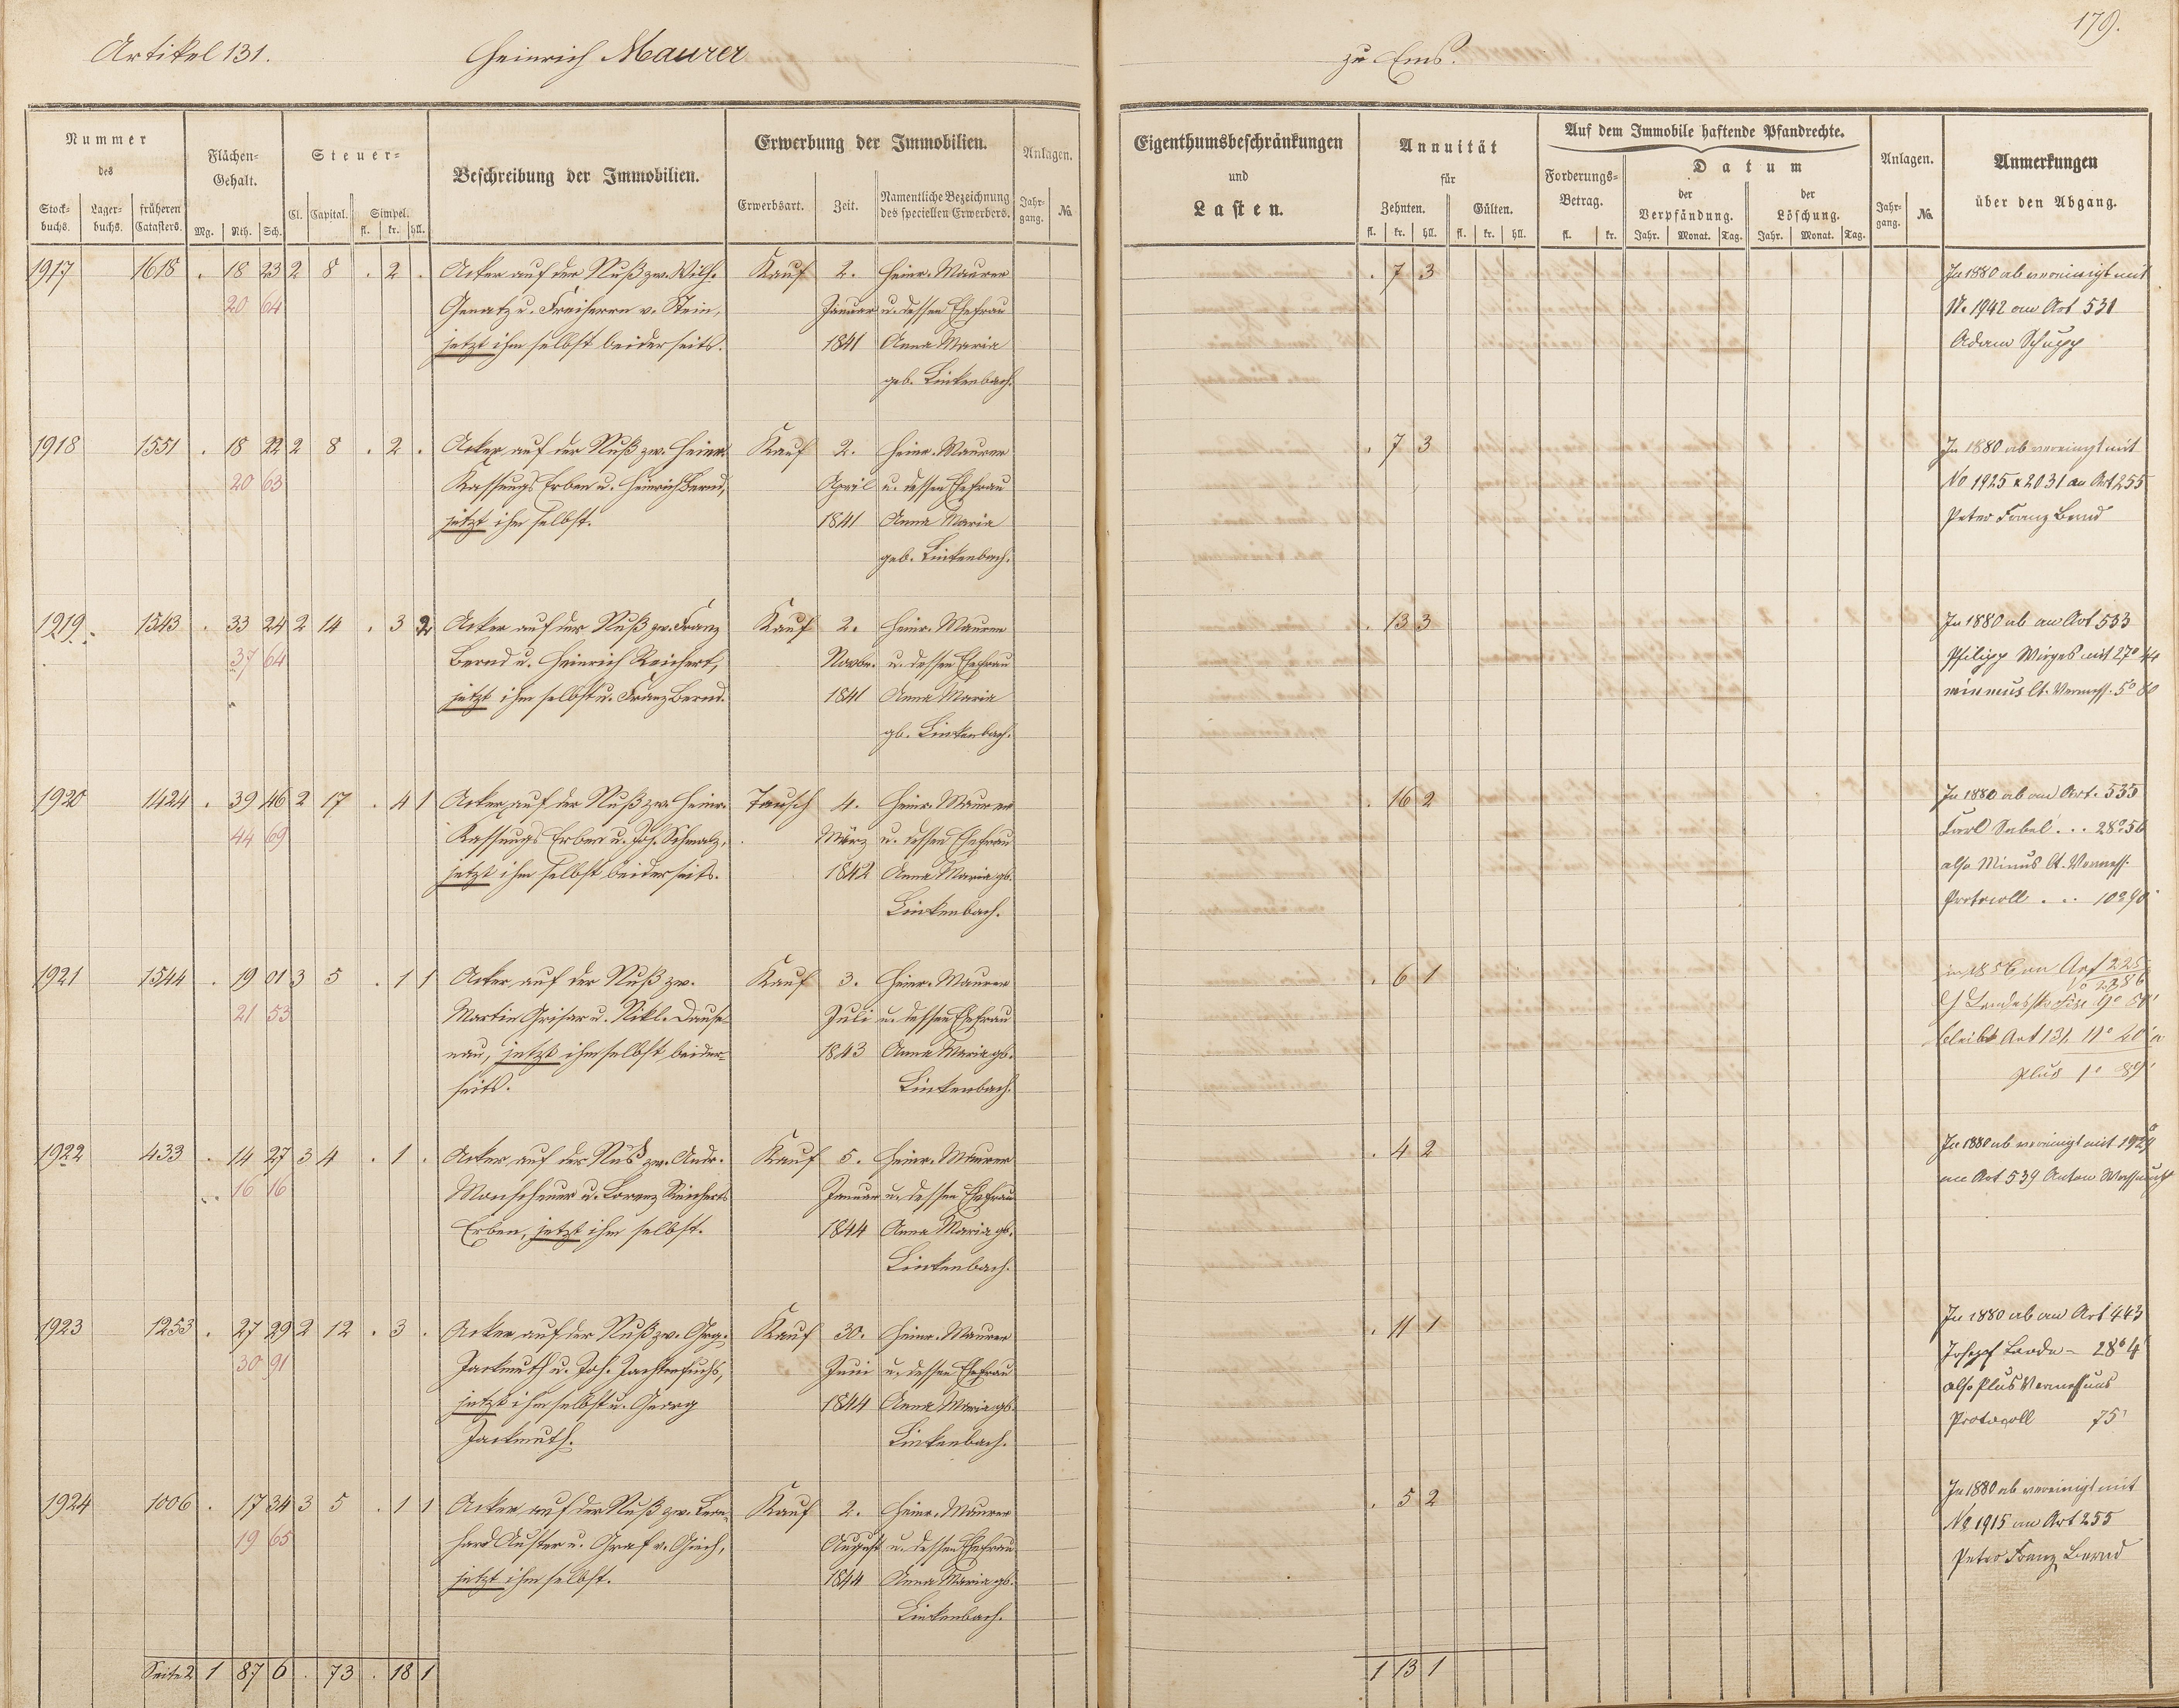 179.
Artikel 131. Heinrich Maurer zu Ems.
Nummer des
Stock-buchs. Lager-buchs. früheren Catasters.
Flächen-Gehalt.
Mg. Rth. Sch.
Steuer-
Cl. Capital. Simpel.
fl. kr. hll.
Beschreibung der Immobilien.
Erwerbung der Immobilien.
Erwerbsart. Zeit. Namentliche Bezeichnung des speciellen Erwerbers.
Anlagen.
Jahr-gang. No.
Eigenthumsbeschränkungen
und
Lasten.
Annuität
für
Zehnten. Gülten.
fl. kr. hll. fl. kr. hll.
Auf dem Immobile haftende Pfandrechte.
Forderungs-Betrag.
fl. kr.
Datum
der Verpfändung. der Löschung.
Jahr. Monat. Tag. Jahr. Monat. Tag.
Anlagen.
Jahr-gang. No.
Anmerkungen
über den Abgang.
1917 1618 . 18 23 2 8 . 2 . Acker auf der Nuß zw. Wilh. Kauf 2. Heinr. Maurer . 7 3 In 1880 ab vereinigt mit
20 64 Genatz u. Freiherrn v. Stein, Januar u. dessen Ehefrau No 1942 an Art 531
jetzt ihm selbst beiderseits. 1841 Anna Maria Adam Schupp
geb. Linkenbach.
1918 1551 . 18 22 2 8 . 2 . Acker auf der Nuß zw. Heinr. Kauf 2. Heinr. Maurer . 7 3 In 1880 ab vereinigt mit
20 63 Erben u. Heinrich Bernd, April u. dessen Ehefrau No 1925 & 2031 an Art 255
jetzt ihm selbst. 1841 Anna Maria Peter Franz Bernd
geb. Linkenbach.
1919 1543 . 33 24 2 14 . 3 2 Acker auf der Nuß zw. Franz Kauf 2. Heinr. Maurer . 13 3 In 1880 ab an Art 533
37 64 Bernd u. Heinrich Reichert, Novbr. u. dessen Ehefrau Philipp Wirges mit 27° 44
jetzt ihm selbst u. Franz Bernd. 1841 Anna Maria minus lt. Vermess. 5° 80
gb. Linkenbach.
1920 1424 . 39 46 2 17 . 4 1 Acker auf der Nuß zw. Heinr. Tausch 4. Heinr. Maurer . 16 2 In 1880 ab an Art. 535
44 69 Erben u. Joh. Schmalz, März u. dessen Ehefrau Carl Sabel . . . 28° 56
jetzt ihm selbst beiderseits. 1842 Anna Maria gb. also Minus lt. Vermess.
Linkenbach. Protocoll . . . 10° 90
1921 1544 . 19 01 3 5 . 1 1 Acker auf der Nuß zw. Kauf 3. Heinr. Maurer . 6 1 in 1856 an Art 225
21 53 Martin Grisar u. Nikl. Dause- Juli u. dessen Ehefrau
nau, jetzt ihm selbst beider- 1843 Anna Maria gb. bleibt Art 131 11° 20
seits. Linkenbach. Plus 1° 89'
1922 433 . 14 27 3 4 . 1 . Acker auf der Nuß zw. Andr. Kauf 5. Heinr. Maurer . 4 2 In 1880 ab vereinigt mit 1929
16 16 Monscheuer u. Lorenz Reicherts Januar u. dessen Ehefrau an Art 539 Anton
Erben, jetzt ihm selbst. 1844 Anna Maria gb.
Linkenbach.
1923 1253 . 27 29 2 12 . 3 . Acker auf der Nuß zw. Grg. Kauf 30. Heinr. Maurer . 11 1 In 1880 ab an Art 443
30 91 Jackmuth u. Joh. Juni u. dessen Ehefrau Joseph 28° 4'
jetzt ihm selbst u. Georg 1844 Anna Maria gb. also Plus Vermessuns
Jackmuth. Linkenbach. Protocoll 75'
1924 1006 . 17 34 3 5 . 1 1 Acker auf der Nuß zw. Bern- Kauf 2. Heinr. Maurer . 5 2 In 1880 ab vereinigt mit
19 65 hard Auster u. Graf v. Giech, August u. dessen Ehefrau No 1915 an Art 255
jetzt ihm selbst. 1844 Anna Maria gb. Peter Franz Bernd
Linkenbach.
Seite 2 1 87 6 . 73 . 18 1 1 13 1